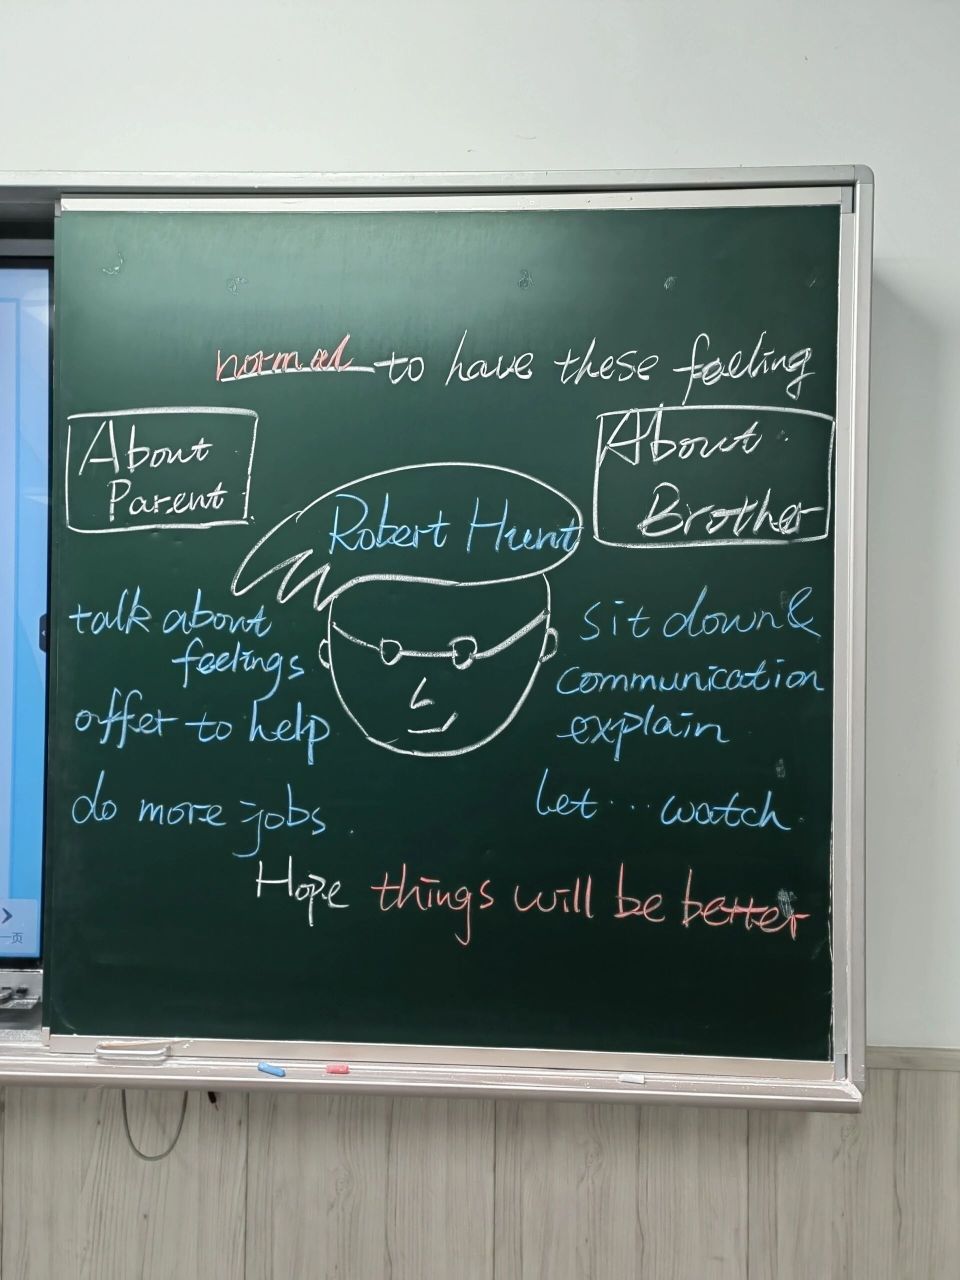 normal to have these feeling
About
Parent
About
Brother
Robert Hunt
talk about
feelings
offer to help
do more jobs.
sit down &
communication
explain
let ... watch.
Hope things will be better
一页